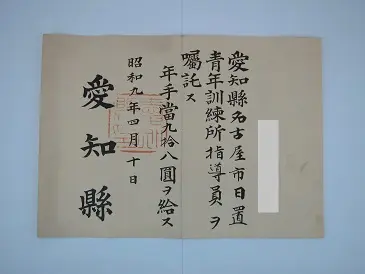 愛知縣名古屋市日置
青年訓練所指導員ヲ
囑託ス
年手當九拾八圓ヲ給ス
昭和九年四月十日
愛知縣